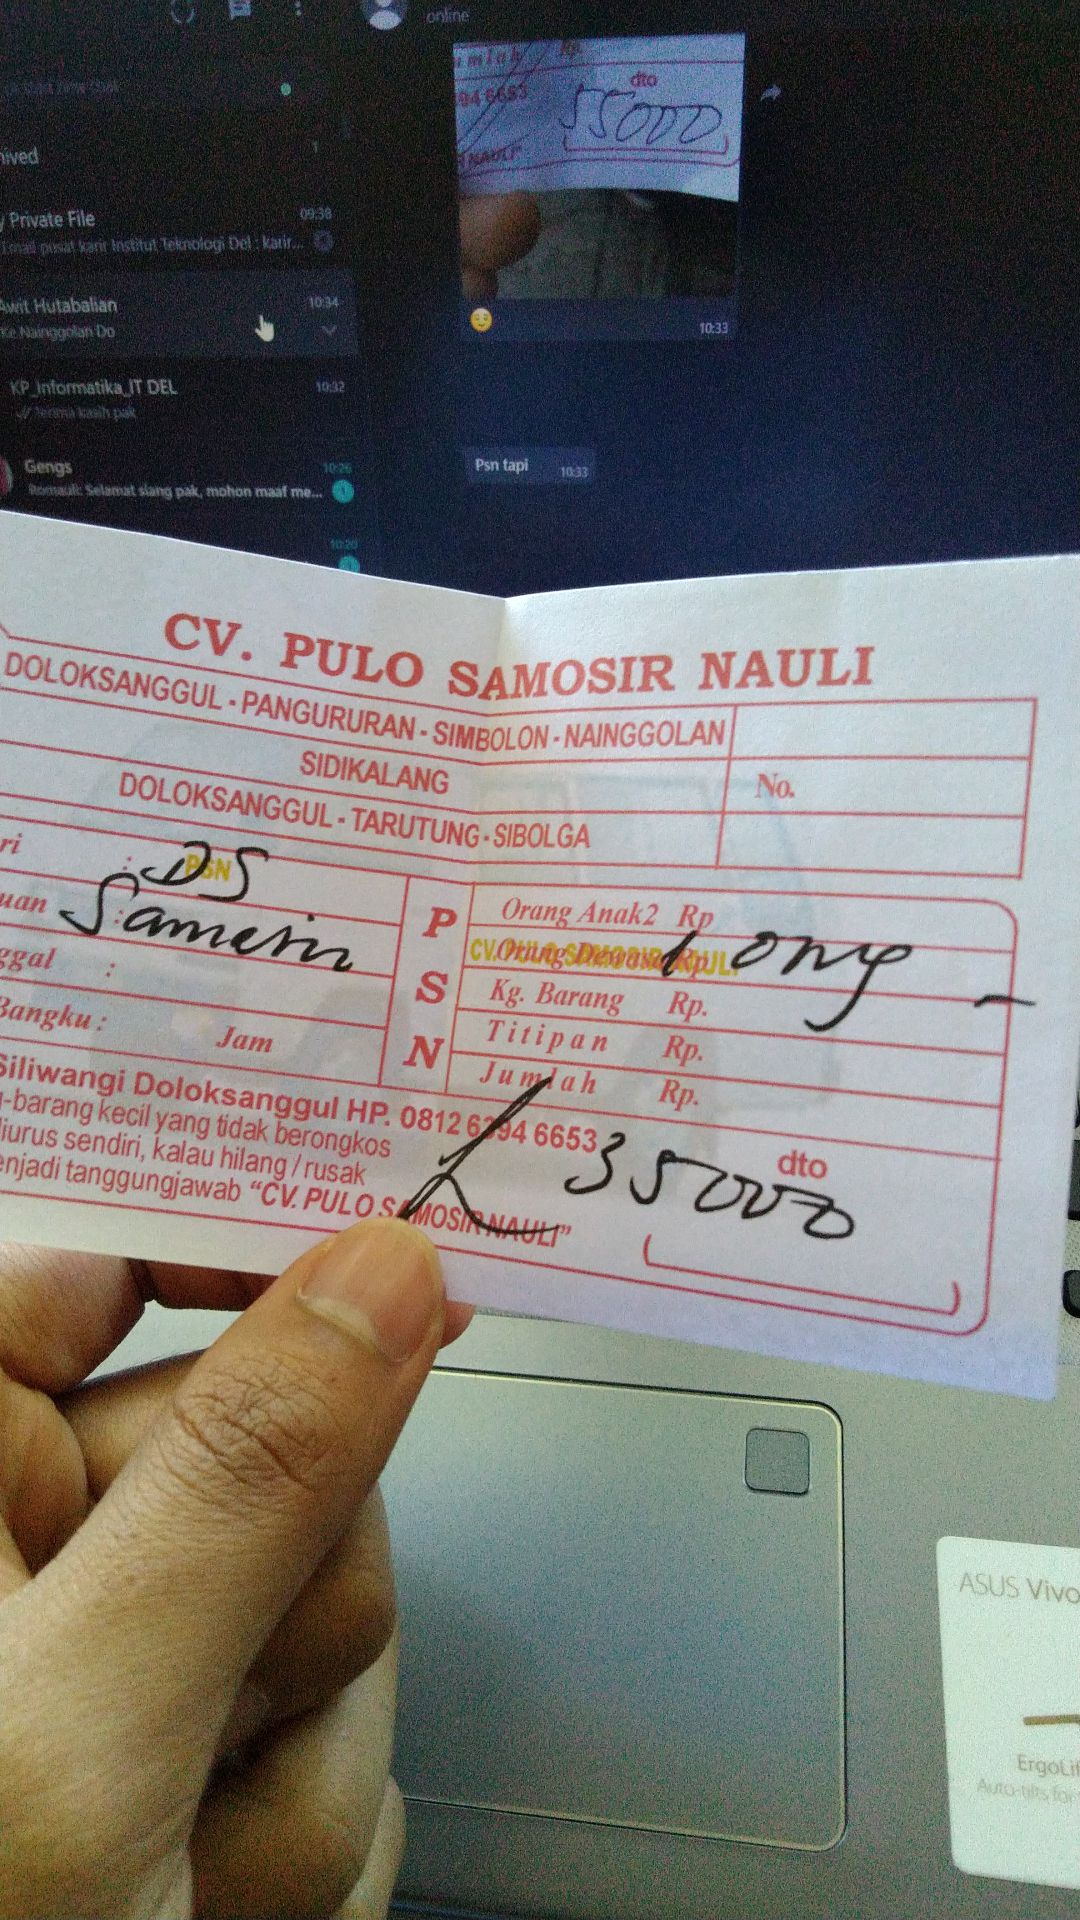 online
umlah Rp.
dto
94 6653
55000
NAULI"
10:33
hived
1
y Private File 09:38
Email pusat karir Institut Teknologi Del : karir...
Awit Hutabalian 10:34
Ke Nainggolan Do
KP_Informatika_IT DEL 10:32
Terima kasih pak
Gengs 10:26
Romauli: Selamat siang pak, mohon maaf me... 1
10:20
Psn tapi 10:33
CV. PULO SAMOSIR NAULI
DOLOKSANGGUL - PANGURURAN - SIMBOLON - NAINGGOLAN
SIDIKALANG
No.
DOLOKSANGGUL - TARUTUNG - SIBOLGA
ri : DS
PSN
uan : Samosir
ggal :
Bangku : Jam
P S N
Orang Anak2 Rp
Orang Dewasa Rp. 1 ong
CV. PULO SAMOSIR NAULI
Kg. Barang Rp.
Titipan Rp.
Jumlah Rp.
Siliwangi Doloksanggul HP. 0812 6394 6653
g-barang kecil yang tidak berongkos
diurus sendiri, kalau hilang / rusak
enjadi tanggungjawab "CV. PULO SAMOSIR NAULI"
dto
35000
ASUS Vivo
ErgoLif
Auto-tilts for